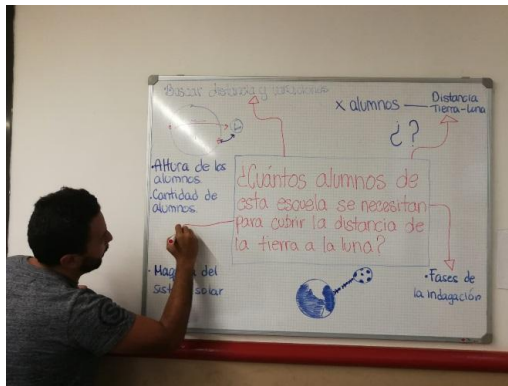 Buscar distancia y
x alumnos —— Distancia
Tierra-Luna
¿?
•Altura de los
alumnos.
•Cantidad de
alumnos.
¿Cuántos alumnos de
esta escuela se necesitan
para cubrir la distancia de
la tierra a la luna?
• del
solar
•Fases de
la indagación